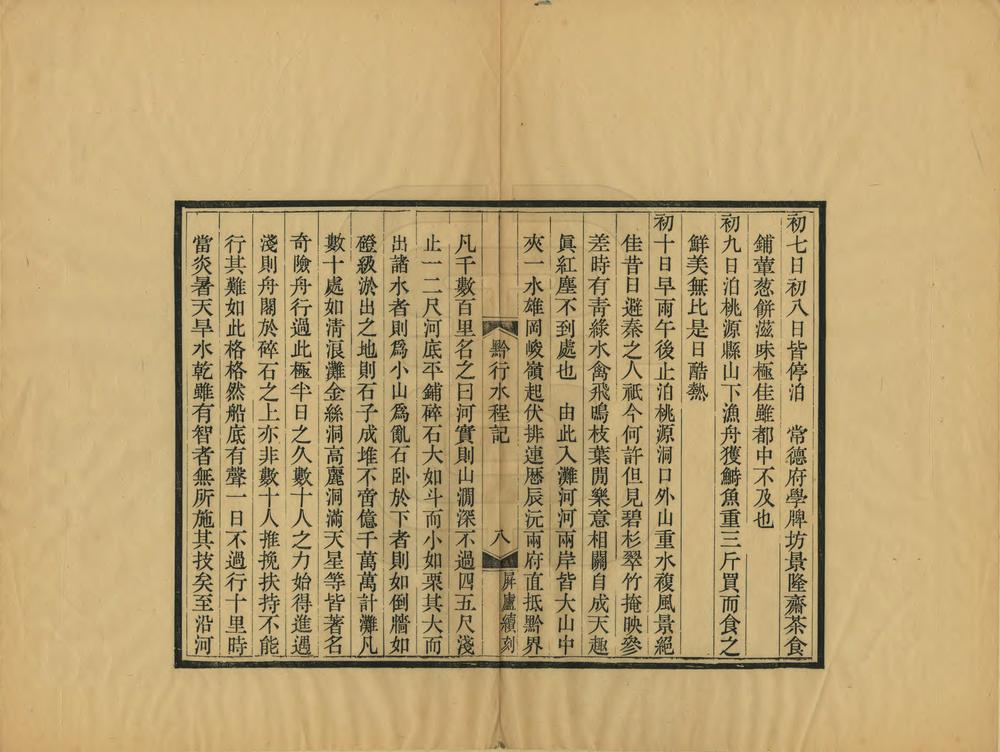 初七日初八日皆停泊　常德府學牌坊景隆齋茶食
鋪葷葱餅滋味極佳雖都中不及也
初九日泊桃源縣山下漁舟獲鰣魚重三斤買而食之
鮮美無比是日酷熱
初十日早雨午後止泊桃源洞口外山重水複風景絕
佳昔日避秦之人祇今何許但見碧杉翠竹掩映參
差時有靑綠水禽飛鳴枝葉閒樂意相關自成天趣
眞紅塵不到處也　由此入灘河河兩岸皆大山中
夾一水雄岡峻嶺起伏排連歷辰沅兩府直抵黔界
黔行水程記　八　屛廬續刻
凡千數百里名之曰河實則山澗深不過四五尺淺
止一二尺河底平鋪碎石大如斗而小如栗其大而
出諸水者則爲小山爲亂石卧於下者則如倒牆如
磴級淤出之地則石子成堆不啻億千萬萬計灘凡
數十處如淸浪灘金絲洞高麗洞滿天星等皆著名
奇險舟行過此極半日之久數十人之力始得進遇
淺則舟閣於碎石之上亦非數十人推挽扶持不能
行其難如此格格然船底有聲一日不過行十里時
當炎暑天旱水乾雖有智者無所施其技矣至沿河